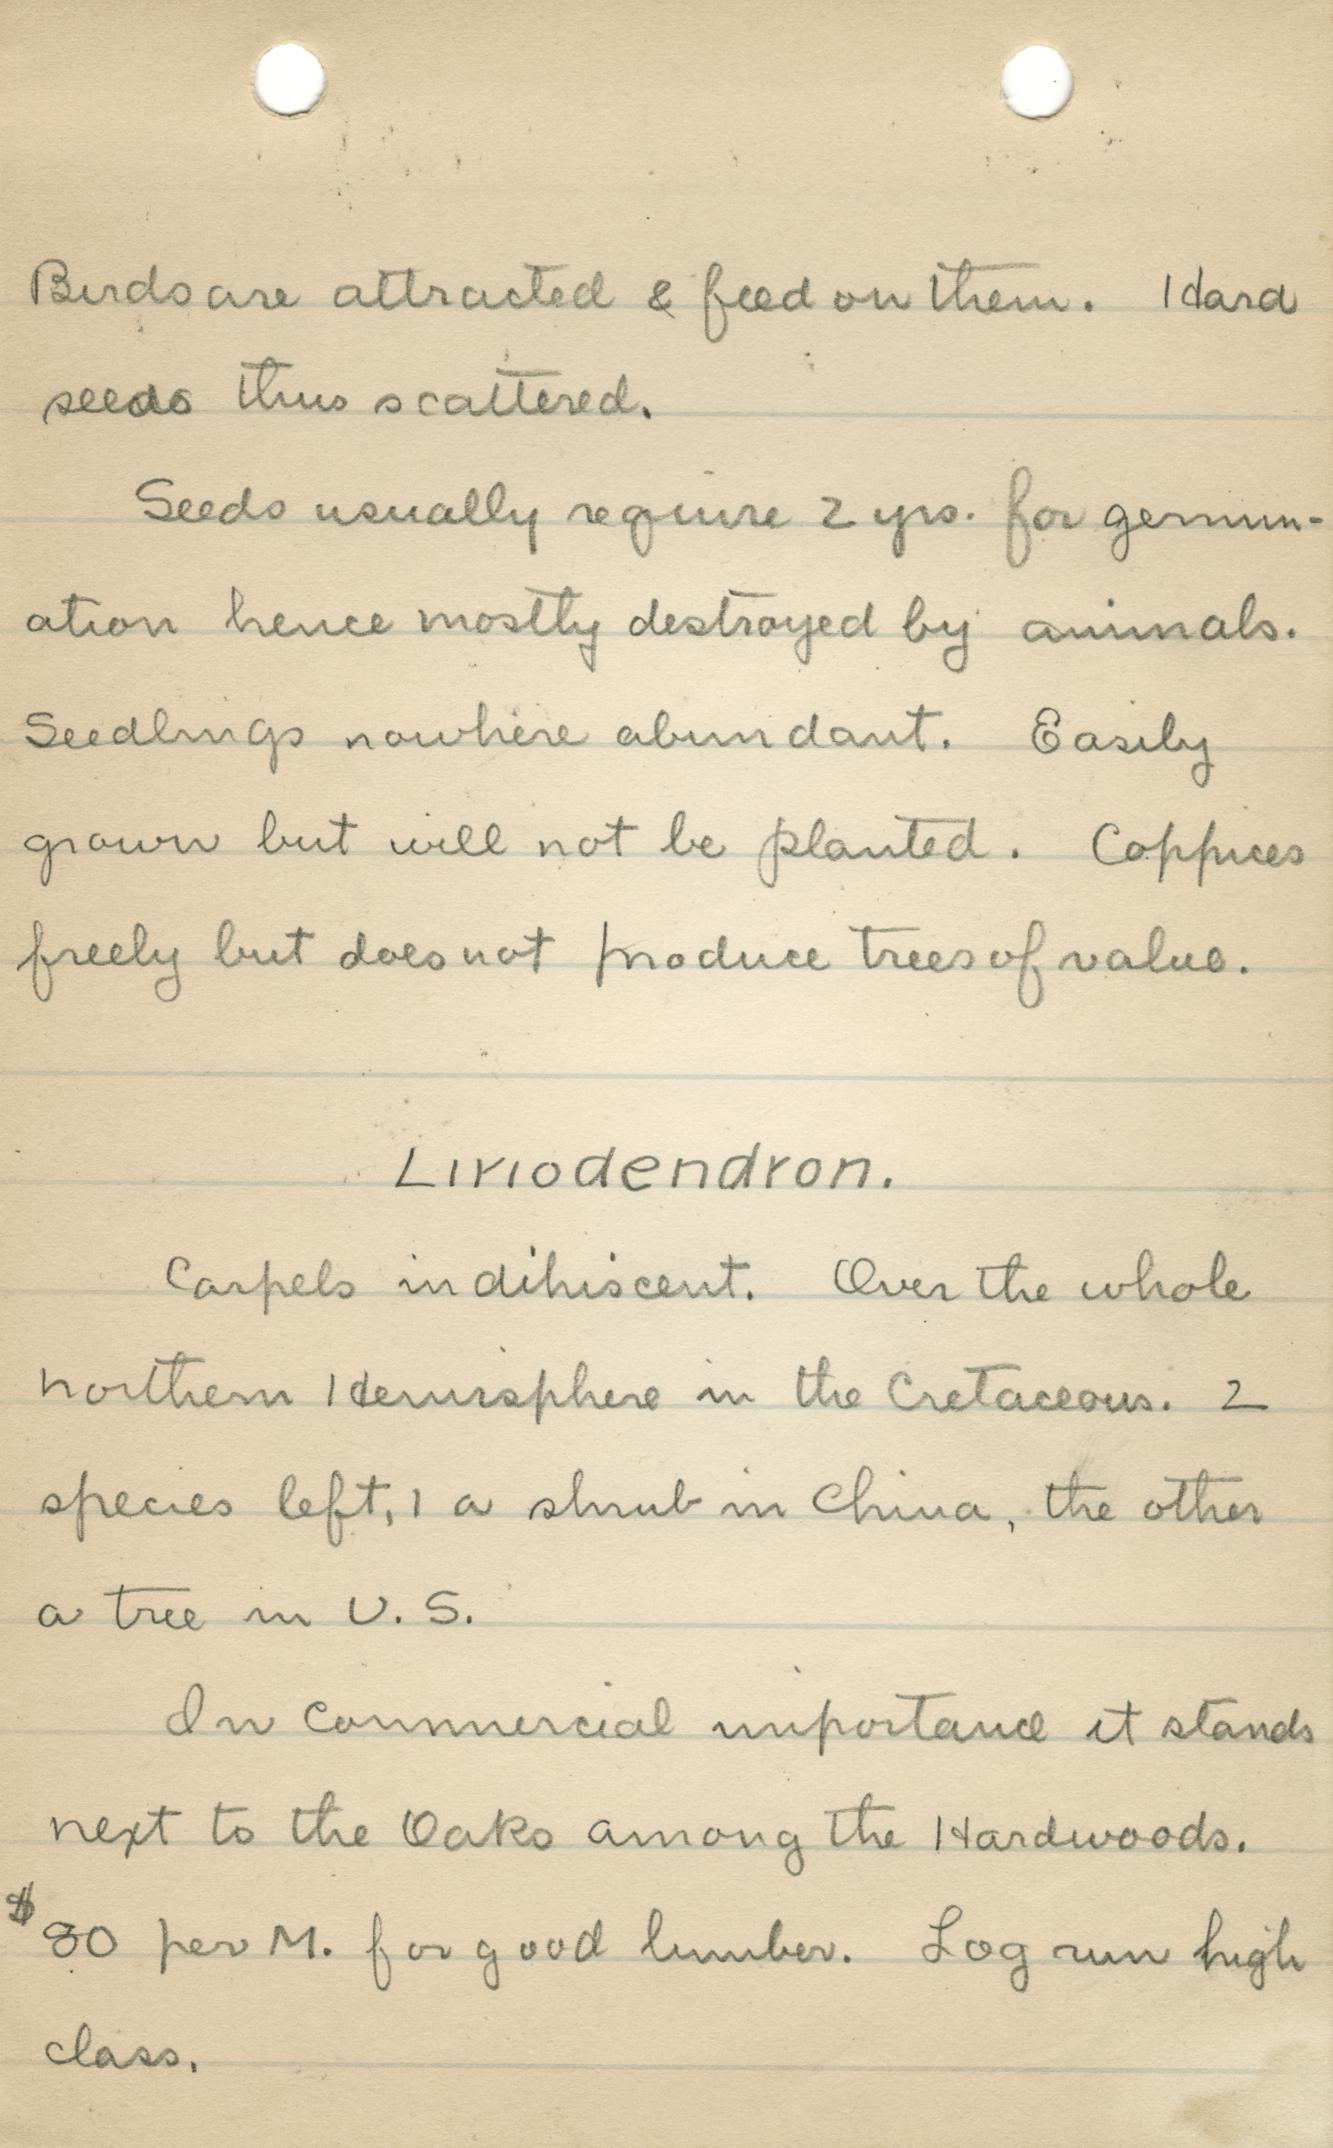 Birds are attracted & feed on them. Hard
seeds thus scattered.
Seeds usually require 2 yrs. for germin-
ation hence mostly destroyed by animals.
Seedlings nowhere abundant. Easily
grown but will not be planted. Coppices
freely but does not produce trees of value.
Liriodendron.
Carpels indihiscent. Over the whole
northern Hemisphere in the Cretaceous. 2
species left, 1 a shrub in China, the other
a tree in U. S.
In commercial importance it stands
next to the Oaks among the Hardwoods.
$80 per M. for good lumber. Log run high
class.